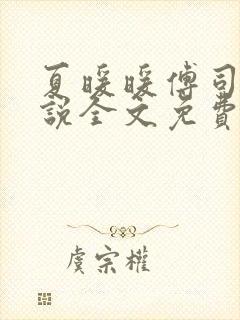 夏暖暖傅司
說全文免費
虞宗權